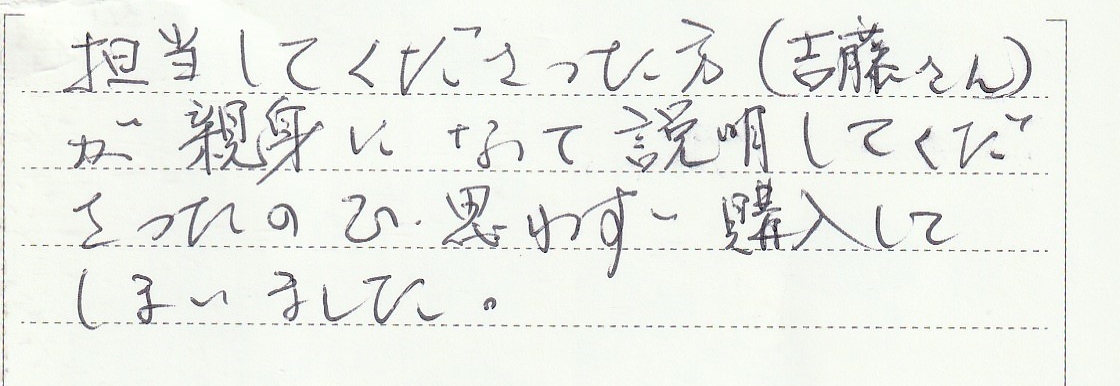 担当してくださった方(吉藤さん)
が親身になって説明してくだ
さったので、思わず購入して
しまいました。